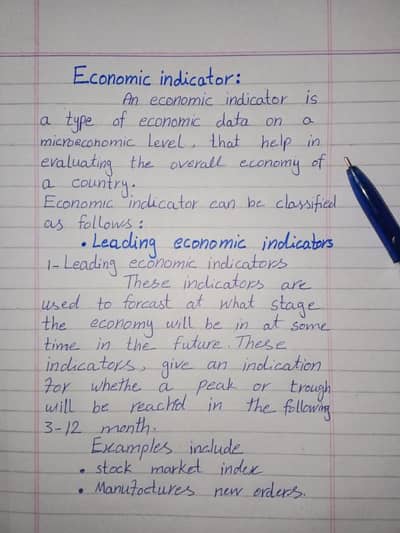 Economic indicator:
An economic indicator is
a type of economic data on a
microeconomic level, that help in
evaluating the overall economy of
a country.
Economic indicator can be classified
as follows:
• Leading economic indicators
1- Leading economic indicators
These indicators are
used to forcast at what stage
the economy will be in at some
time in the future. These
indicators, give an indication
for whethe a peak or trough
will be reached in the following
3-12 month.
Examples include
• stock market index
• Manufactures new orders.